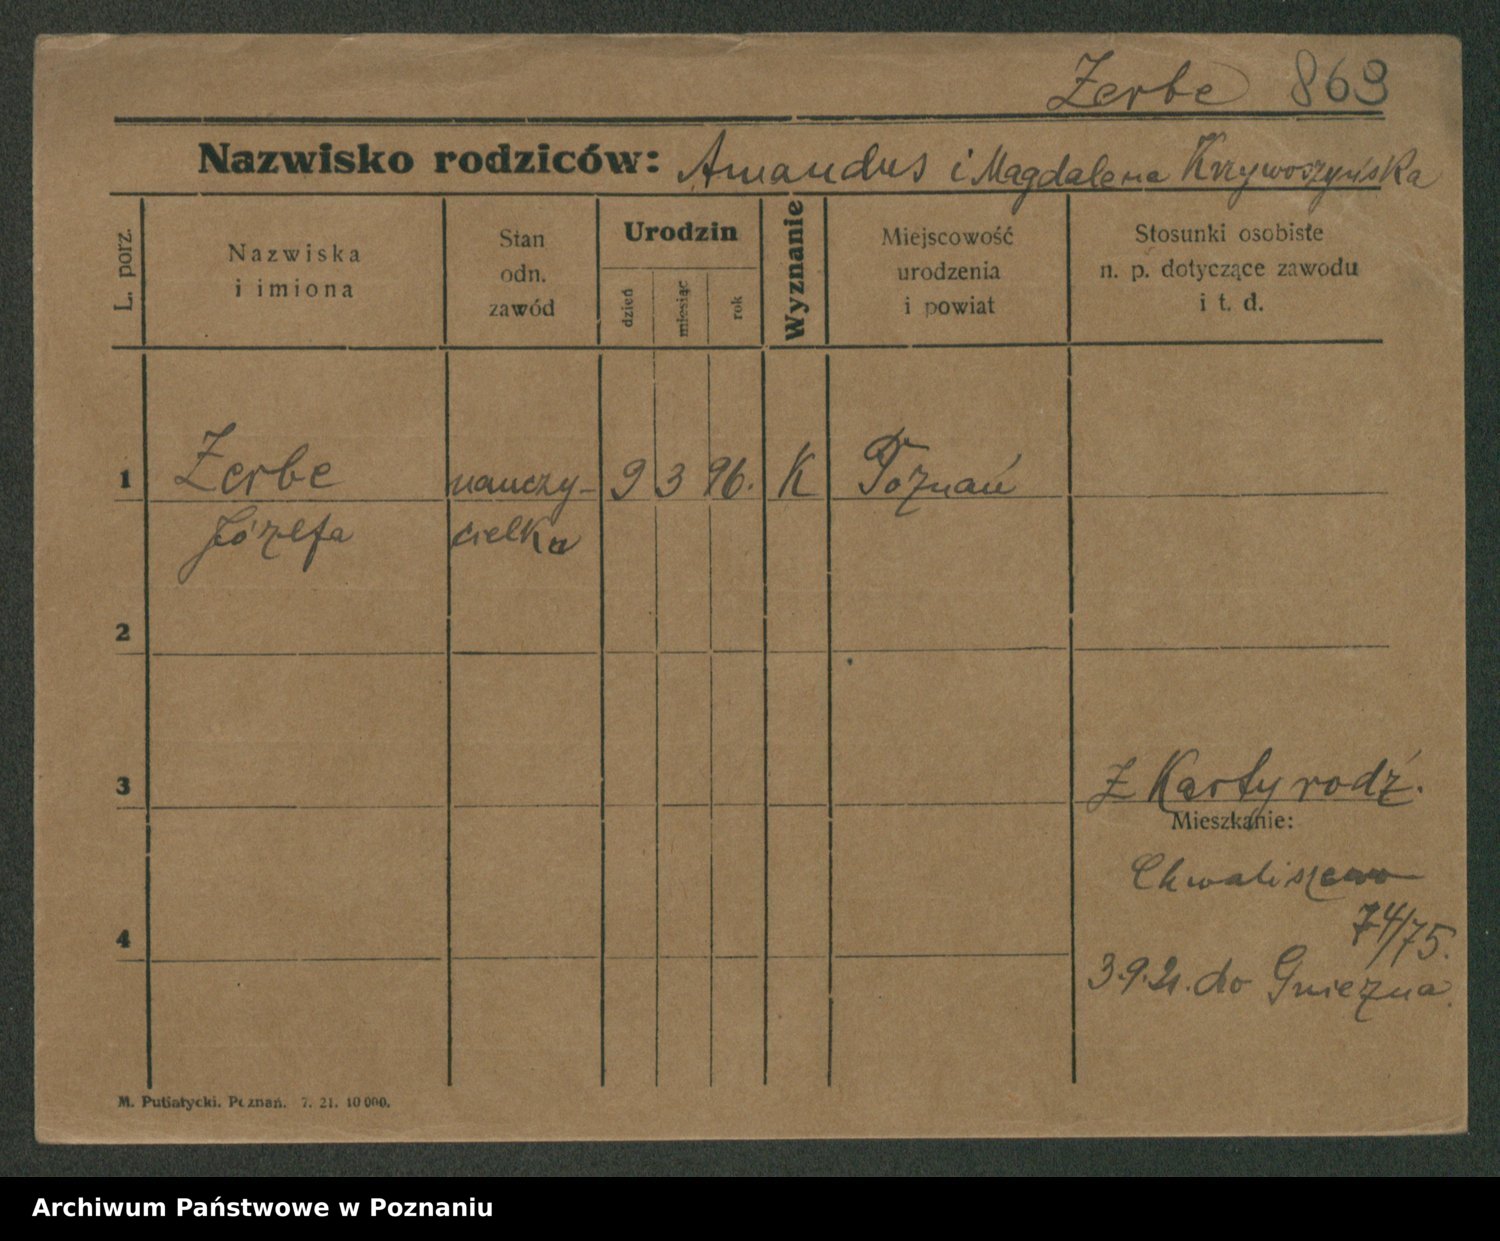 Zerbe 869
Nazwisko rodziców: Amandus i Magdalena Krzywoszyńska
L. porz.
Nazwiska
i imiona
Stan
odn.
zawód
Urodzin
dzień
miesiąc
rok
Wyznanie
Miejscowość
urodzenia
i powiat
Stosunki osobiste
n. p. dotyczące zawodu
i t. d.
1 Zerbe nauczy- 9 3 96. K Poznań
Józefa cielka
2
3 Z Karty rodz.
Mieszkanie:
Chwaliszewo
74/75.
4
3.9.21. do Gniezna.
M. Putiatycki. Poznań. 7. 21. 10 000.
Archiwum Państwowe w Poznaniu